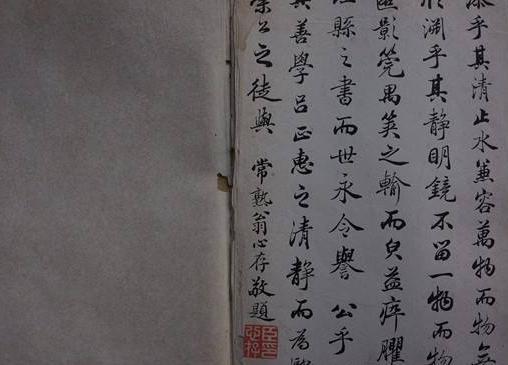 乎其清止水兼容萬物而物無
渊乎其静明鏡不留一物而物
影莞禺筴之輸而皃益瘁臞
縣之書而世永令譽公乎
善學吕正惠之清静而為
公之徒與
常熟翁心存敬題